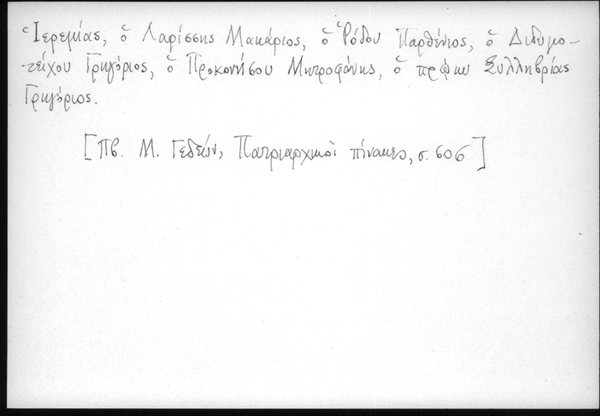 Ἱερεμίας, ὁ Λαρίσσης Μακάριος, ὁ Ῥόδου Παρθένιος, ὁ Διδυμο-
τείχου Γρηγόριος, ὁ Προκονήσου Μητροφάνης, ὁ πρώην Συλληβρίας
Γρηγόριος.
[Πβ. Μ. Γεδεών, Πατριαρχικοὶ πίνακες, σ. 606]